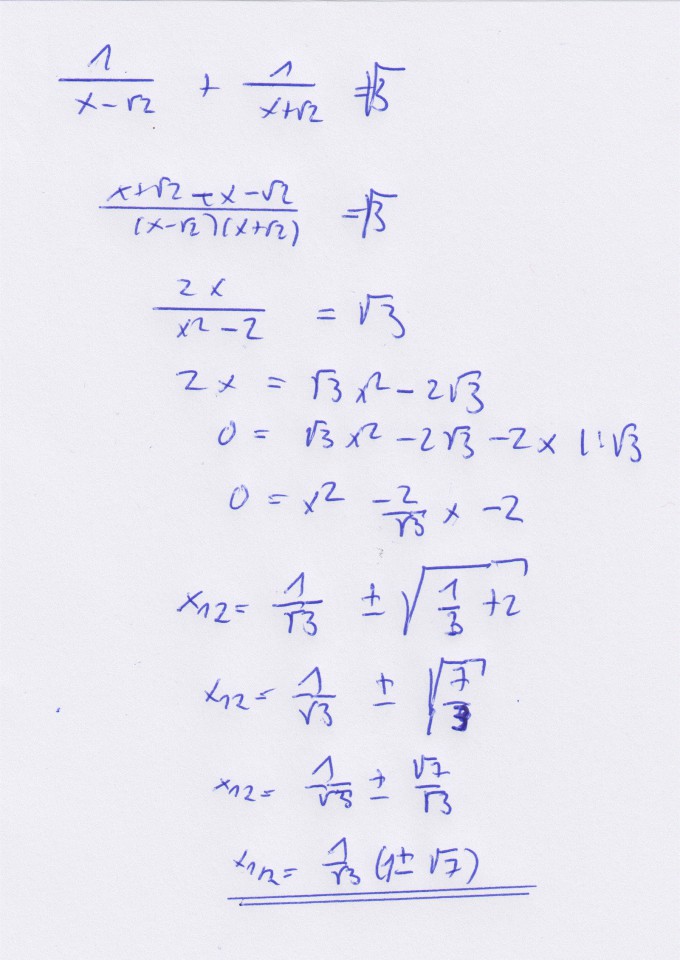 1/(x-√2) + 1/(x+√2) = √3
(x+√2+x-√2)/((x-√2)(x+√2)) = √3
2x/(x²-2) = √3
2x = √3 x² - 2√3
0 = √3 x² - 2√3 - 2x |:√3
0 = x² - 2/√3 x - 2
x₁₂ = 1/√3 ± √(1/3 + 2)
x₁₂ = 1/√3 ± √(7/3)
x₁₂ = 1/√3 ± √7/√3
x₁/₂ = 1/√3 (1 ± √7)